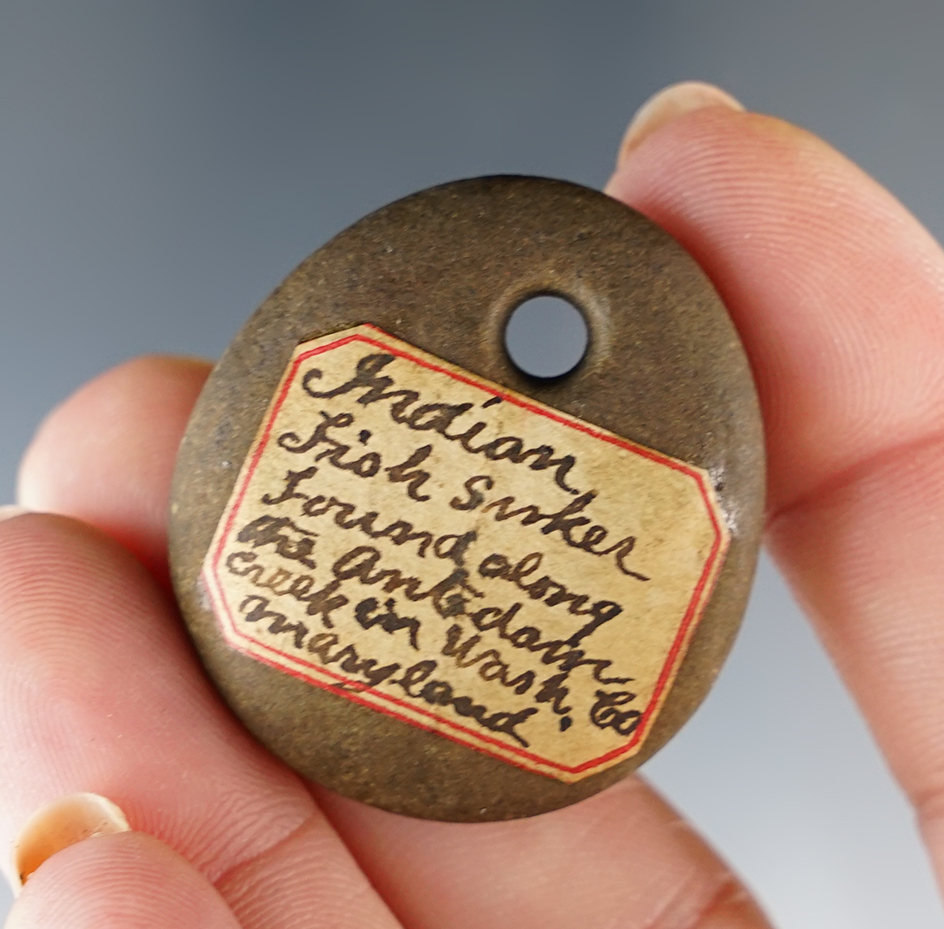 Indian
Fish Sinker
Found along
the Antedam
creek in Wash. Co
Maryland